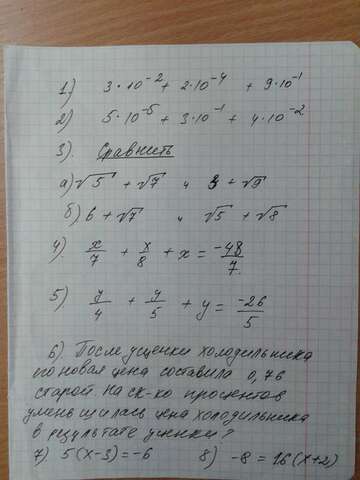 1) 3·10⁻² + 2·10⁻⁴ + 9·10⁻¹
2) 5·10⁻⁵ + 3·10⁻¹ + 4·10⁻²
3). Сравнить
а) √5 + √7 и 3 + √9
б) 6 + √7 и √5 + √8
4) x/7 + x/8 + x = -48/7.
5) y/4 + y/5 + y = -26/5
6). После уценки холодильника
его новая цена составила 0,76
старой. На ск-ко процентов
уменьшилась цена холодильника
в результате уценки?
7) 5(x-3) = -6 8) -8 = 16(x+2)